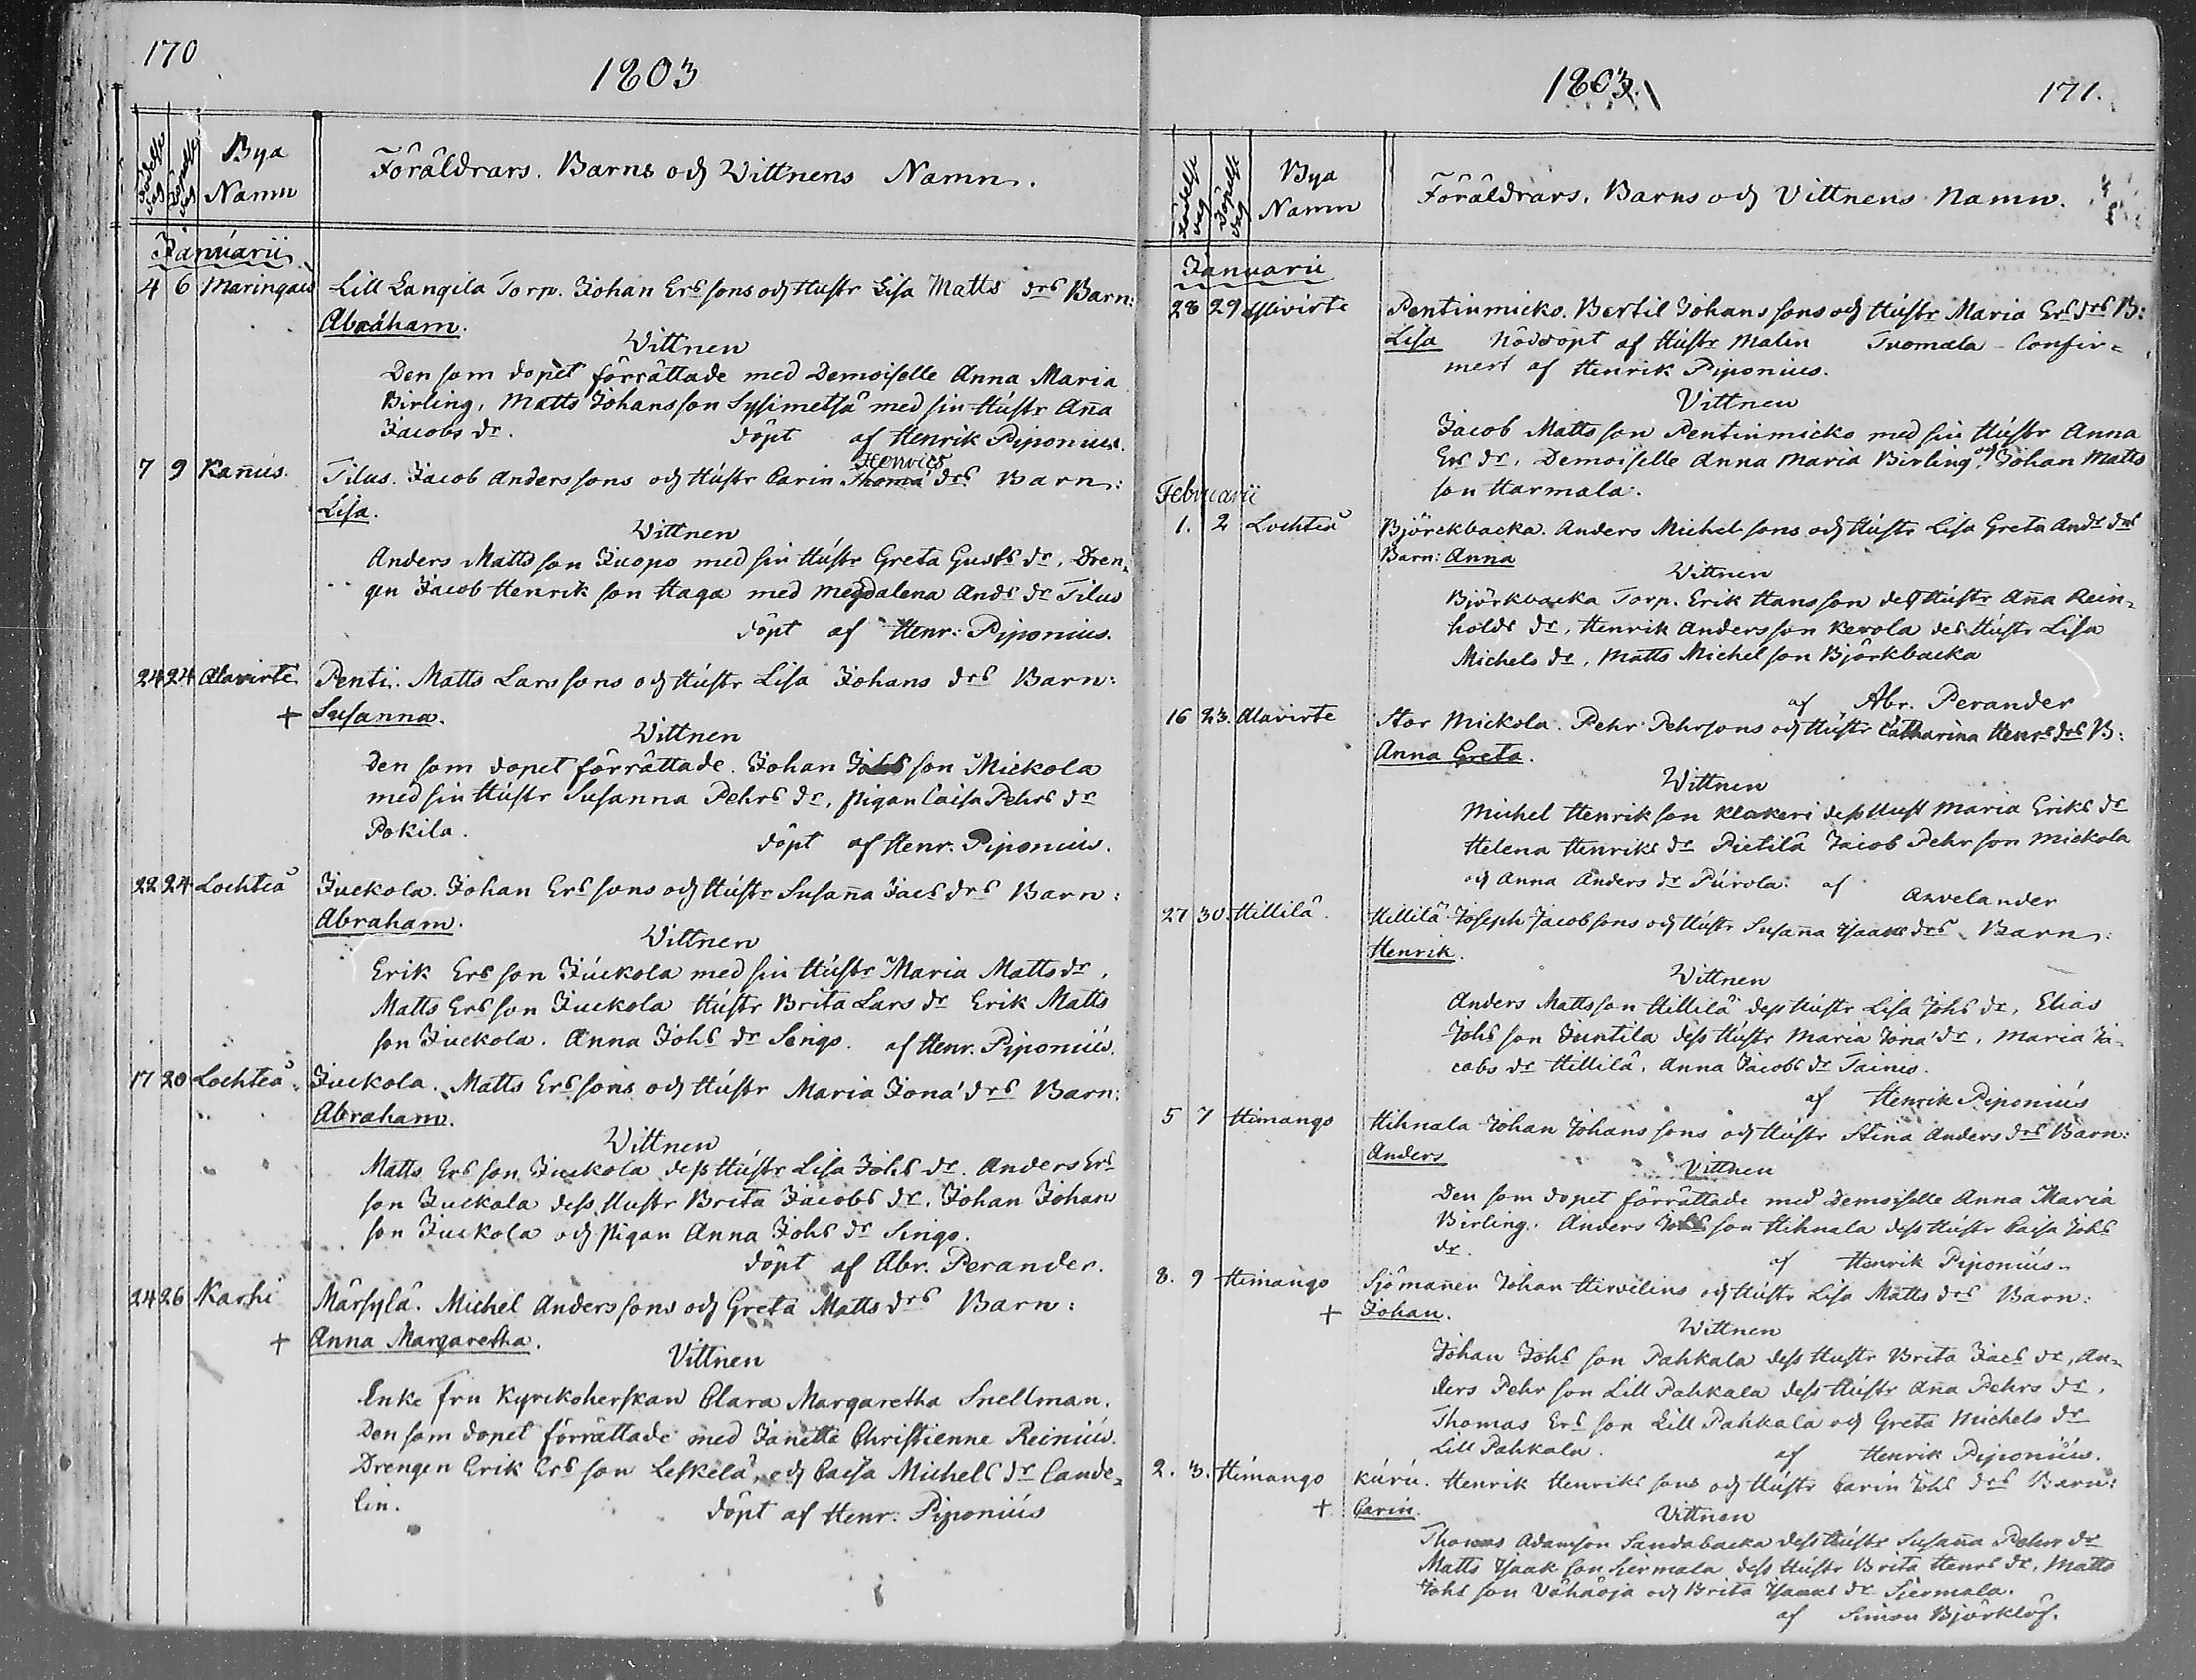 170
1803
Födelse dag
Döpelse dag
Bya Namn
Föräldrars. Barns och Wittnens Namn.
Januarii
4 6 Maringais Lill Langila Torp. Johan Ers sons och Hustr Lisa Matts drs Barn:
Abraham.
Wittnen
Den som dopet förrättade med Demoiselle Anna Maria
Birling, Matts Johansson Sysimetsä med sin Hustr Aña
Jacobs dr. döpt af Henrik Piponius.
Henrics
7 9 Kañus. Tilus. Jacob Anders sons och Hustr Carin Thoma drs Barn:
Lisa.
Wittnen
Anders Matts son Juopo med sin Hustr Greta Gusts dr, Dren-
gen Jacob Henrik son Haga med Magdalena Ands dr Tilus
döpt af Henr: Piponius.
24 24 Alavirte Penti. Matts Lars sons och Hustr Lisa Johans drs Barn:
+ Susanna.
Wittnen
Den som dopet förrättade. Johan Johs son Mickola
med sin Hustr Susanna Pehrs dr, pigan Caisa Pehrs dr
Pokila. döpt af Henr. Piponius.
22 24 Lochteå Juckola. Johan Ers sons och Hustr Susaña Jacs drs Barn:
Abraham.
Wittnen
Erik Ers son Juckola med sin Hustr Maria Matts dr,
Matts Ers son Juckola Hustr Brita Lars dr Erik Matts
son Juckola. Anna Johs dr Sengo. af Henr. Piponius.
17 20 Lochteå. Juckola. Matts Ers sons och Hustr Maria Jona drs Barn:
Abraham.
Wittnen
Matts Ers son Juckola dess Hustr Lisa Johs dr. Anders Ers
son Juckola dess Hustr Brita Jacobs dr. Johan Johan
son Juckola och Pigan Anna Johs dr Sirigo.
döpt af Abr. Perander.
24 26 Karhi Märsylä. Michel Anders sons och Greta Matts drs Barn:
+ Anna Margaretha.
Vittnen
Enke Fru Kyrckoherskan Clara Margaretha Snellman.
Den som dopet förrättade med Janetta Christienne Reinius.
Drengen Erik Ers son Leskelä, och Caisa Michels dr Cande-
lin. döpt af Henr: Piponius
1803.
171.
Födelse dag
Döpelse dag
Bya Namn
Föräldrars, Barns och Vittnens Namn.
Januarii
28 29 Ylivirte Pentinmicko. Bertil Johans sons och Hustr Maria Ers drs B:
Lisa Nöddöpt af Hustr Malin Tuomala - Confir=
mert af Henrik Piponius.
Vittnen
Jacob Matts son Pentinmicko med sin Hustr Anna
Ers dr, Demoiselle Anna Maria Birling och Johan Matts
son Harmala.
Februarii
1. 2 Lochteå Björckbacka. Anders Michel sons och Hustr Lisa Greta Ands drs
Barn: Anna
Wittnen
Björkbacka Torp. Erik Hans son dess Hustr Aña Rein-
holds dr, Henrik Anders son Kerola des Hustr Lisa
Michels dr, Matts Michel son Björkbacka
af Abr. Perander
16 23. Alavirte Stor Mickola. Pehr Pehrsons och Hustr Catharina Henrs drs B:
Anna Greta.
Wittnen
Michel Henrik son Klakeri dess Hust Maria Eriks dr
Helena Henriks dr Pietilä Jacob Pehr son Mickola
och Anna Anders dr Purola. af Arvelander
27 30. Hillilä. Hillilä. Joseph Jacobsons och Hustr Susaña Isaacs drs Barn:
Henrik.
Wittnen
Anders Mattsson Hillilä dess Hustr Lisa Johs dr, Elias
Johs son Juntila dess Hustr Maria Jona dr, Maria Ja-
cobs dr Hillilä, Anna Jacobs dr Tainio.
af Henrik Piponius
5 7 Himango Hihnala Johan Johans sons och Hustr Stina Anders drs Barn:
Anders
Vittnen
Den som dopet förrättade med Demoiselle Anna Maria
Birling. Anders Johs son Hihnala dess Hustr Caisa Johs
dr. af Henrik Piponius.
8. 9 Himango Sjömanen Johan Hirvelius och Hustr Lisa Matts drs Barn:
+ Johan.
Wittnen
Johan Johs son Pahkala dess Hustr Brita Jacs dr, An-
ders Pehr son Lill Pahkala dess Hustr Aña Pehrs dr.
Thomas Ers son Lill Pahkala och Greta Michels dr
Lill Pahkala. af Henrik Piponius.
2. 3. Himango Kúrú. Henrik Henriks sons och Hustr Carin Johs drs Barn:
+ Carin.
Vittnen
Thomas Adamson Sandabacka dess Hustr Susaña Pehrs dr
Matts Isaak son Siermala dess Hustr Brita Henrs dr, Matts
Johs son Vähäoja och Brita Isaacs dr Siermala.
af Simon Björklöf.